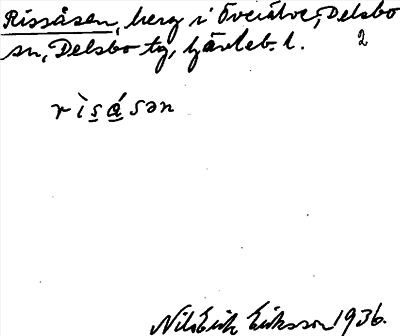 Rissåsen, berg i Överälve, Delsbo
sn, Delsbo tg, Gävleb. l. 2
rìsåsən
Nils Erik Eriksson 1936.